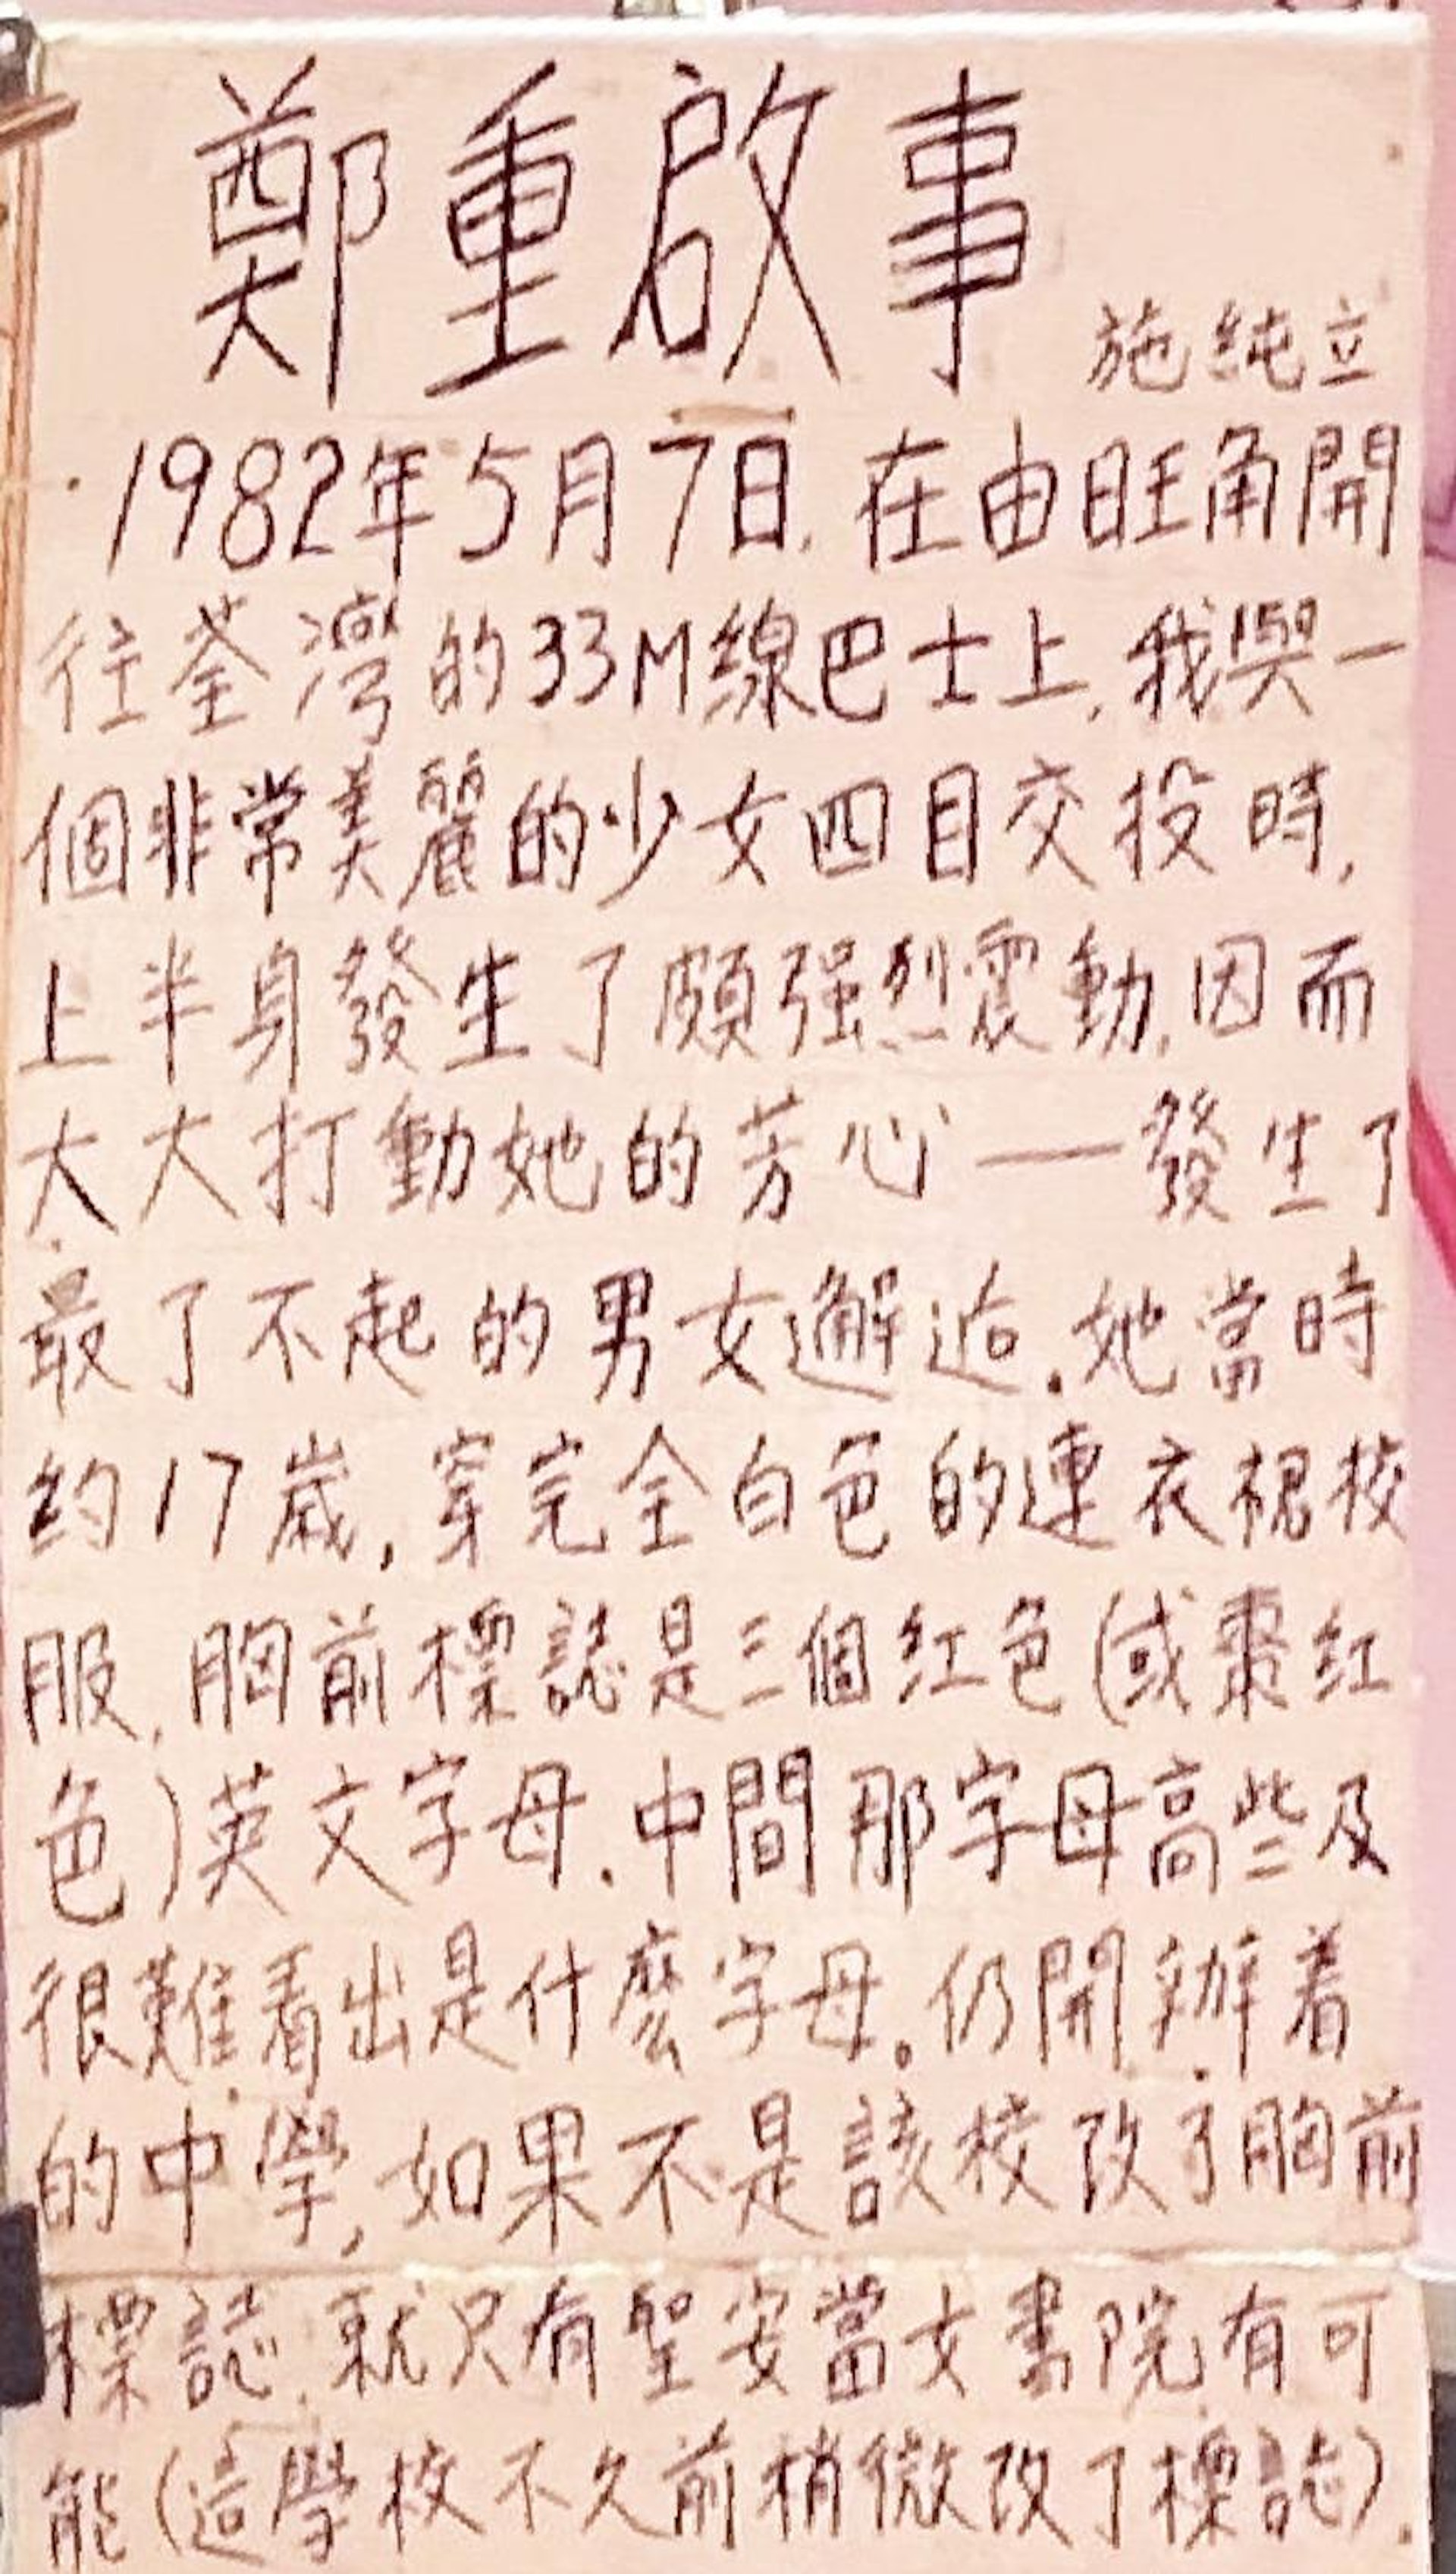 鄭重啟事
施純立
1982年5月7日.在由旺角開
往荃灣的33M線巴士上,我與一
個非常美麗的少女四目交投時,
上半身發生了頗强烈震動,因而
大大打動她的芳心—發生了
最了不起的男女邂逅.她當時
約17歲,穿完全白色的連衣裙校
服,胸前標誌是三個红色(或棗红
色)英文字母.中間那字母高些及
很難看出是什麼字母。仍開辦着
的中學,如果不是該校改了胸前
標誌,就只有聖安當女書院有可
能(這學校不久前稍微改了標誌).